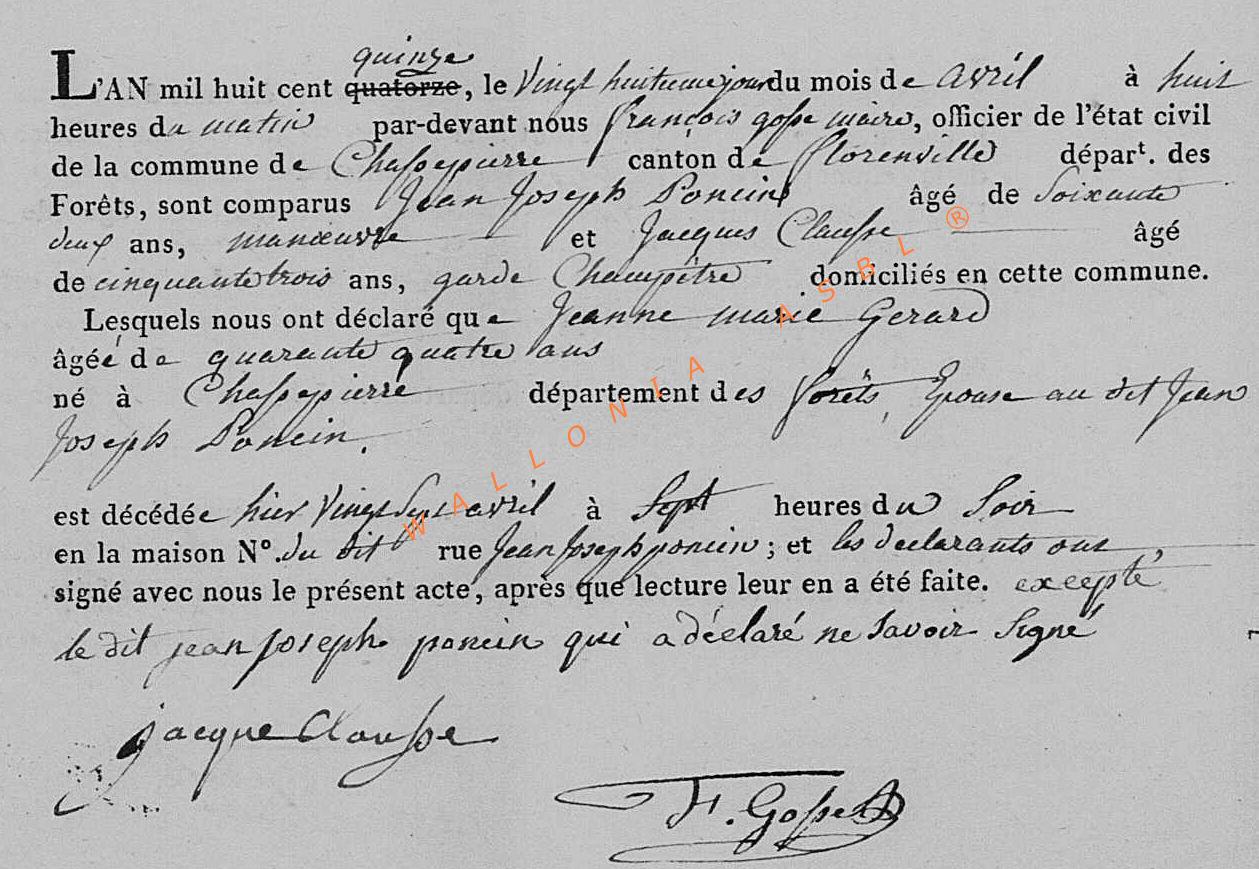 quinze
L'AN mil huit cent quatorze, le Vingt huitieme jour du mois de avril à huit
heures du matin par-devant nous françois gosse maire, officier de l'état civil
de la commune de Chassepierre canton de florenville départ. des
Forêts, sont comparus Jean Joseph Poncin âgé de Soixante
deux ans, manœuvre et Jacques Clausse âgé
de cinquante trois ans, garde Champêtre domiciliés en cette commune.
Lesquels nous ont déclaré que Jeanne marie Gerard
âgée de quarante quatre ans
né à Chassepierre département des forêts, Epouse au dit Jean
Joseph Poncin.
est décédée hier Vingt Sept avril à Sept heures du Soir
en la maison N°. du dit rue Jean Joseph poncin; et les declarants ont,
signé avec nous le présent acte, après que lecture leur en a été faite. excepté
le dit jean Joseph poncin qui a déclaré ne Savoir Signé
jacque Clausse
F. Gosse
WALLONIA ASBL ®